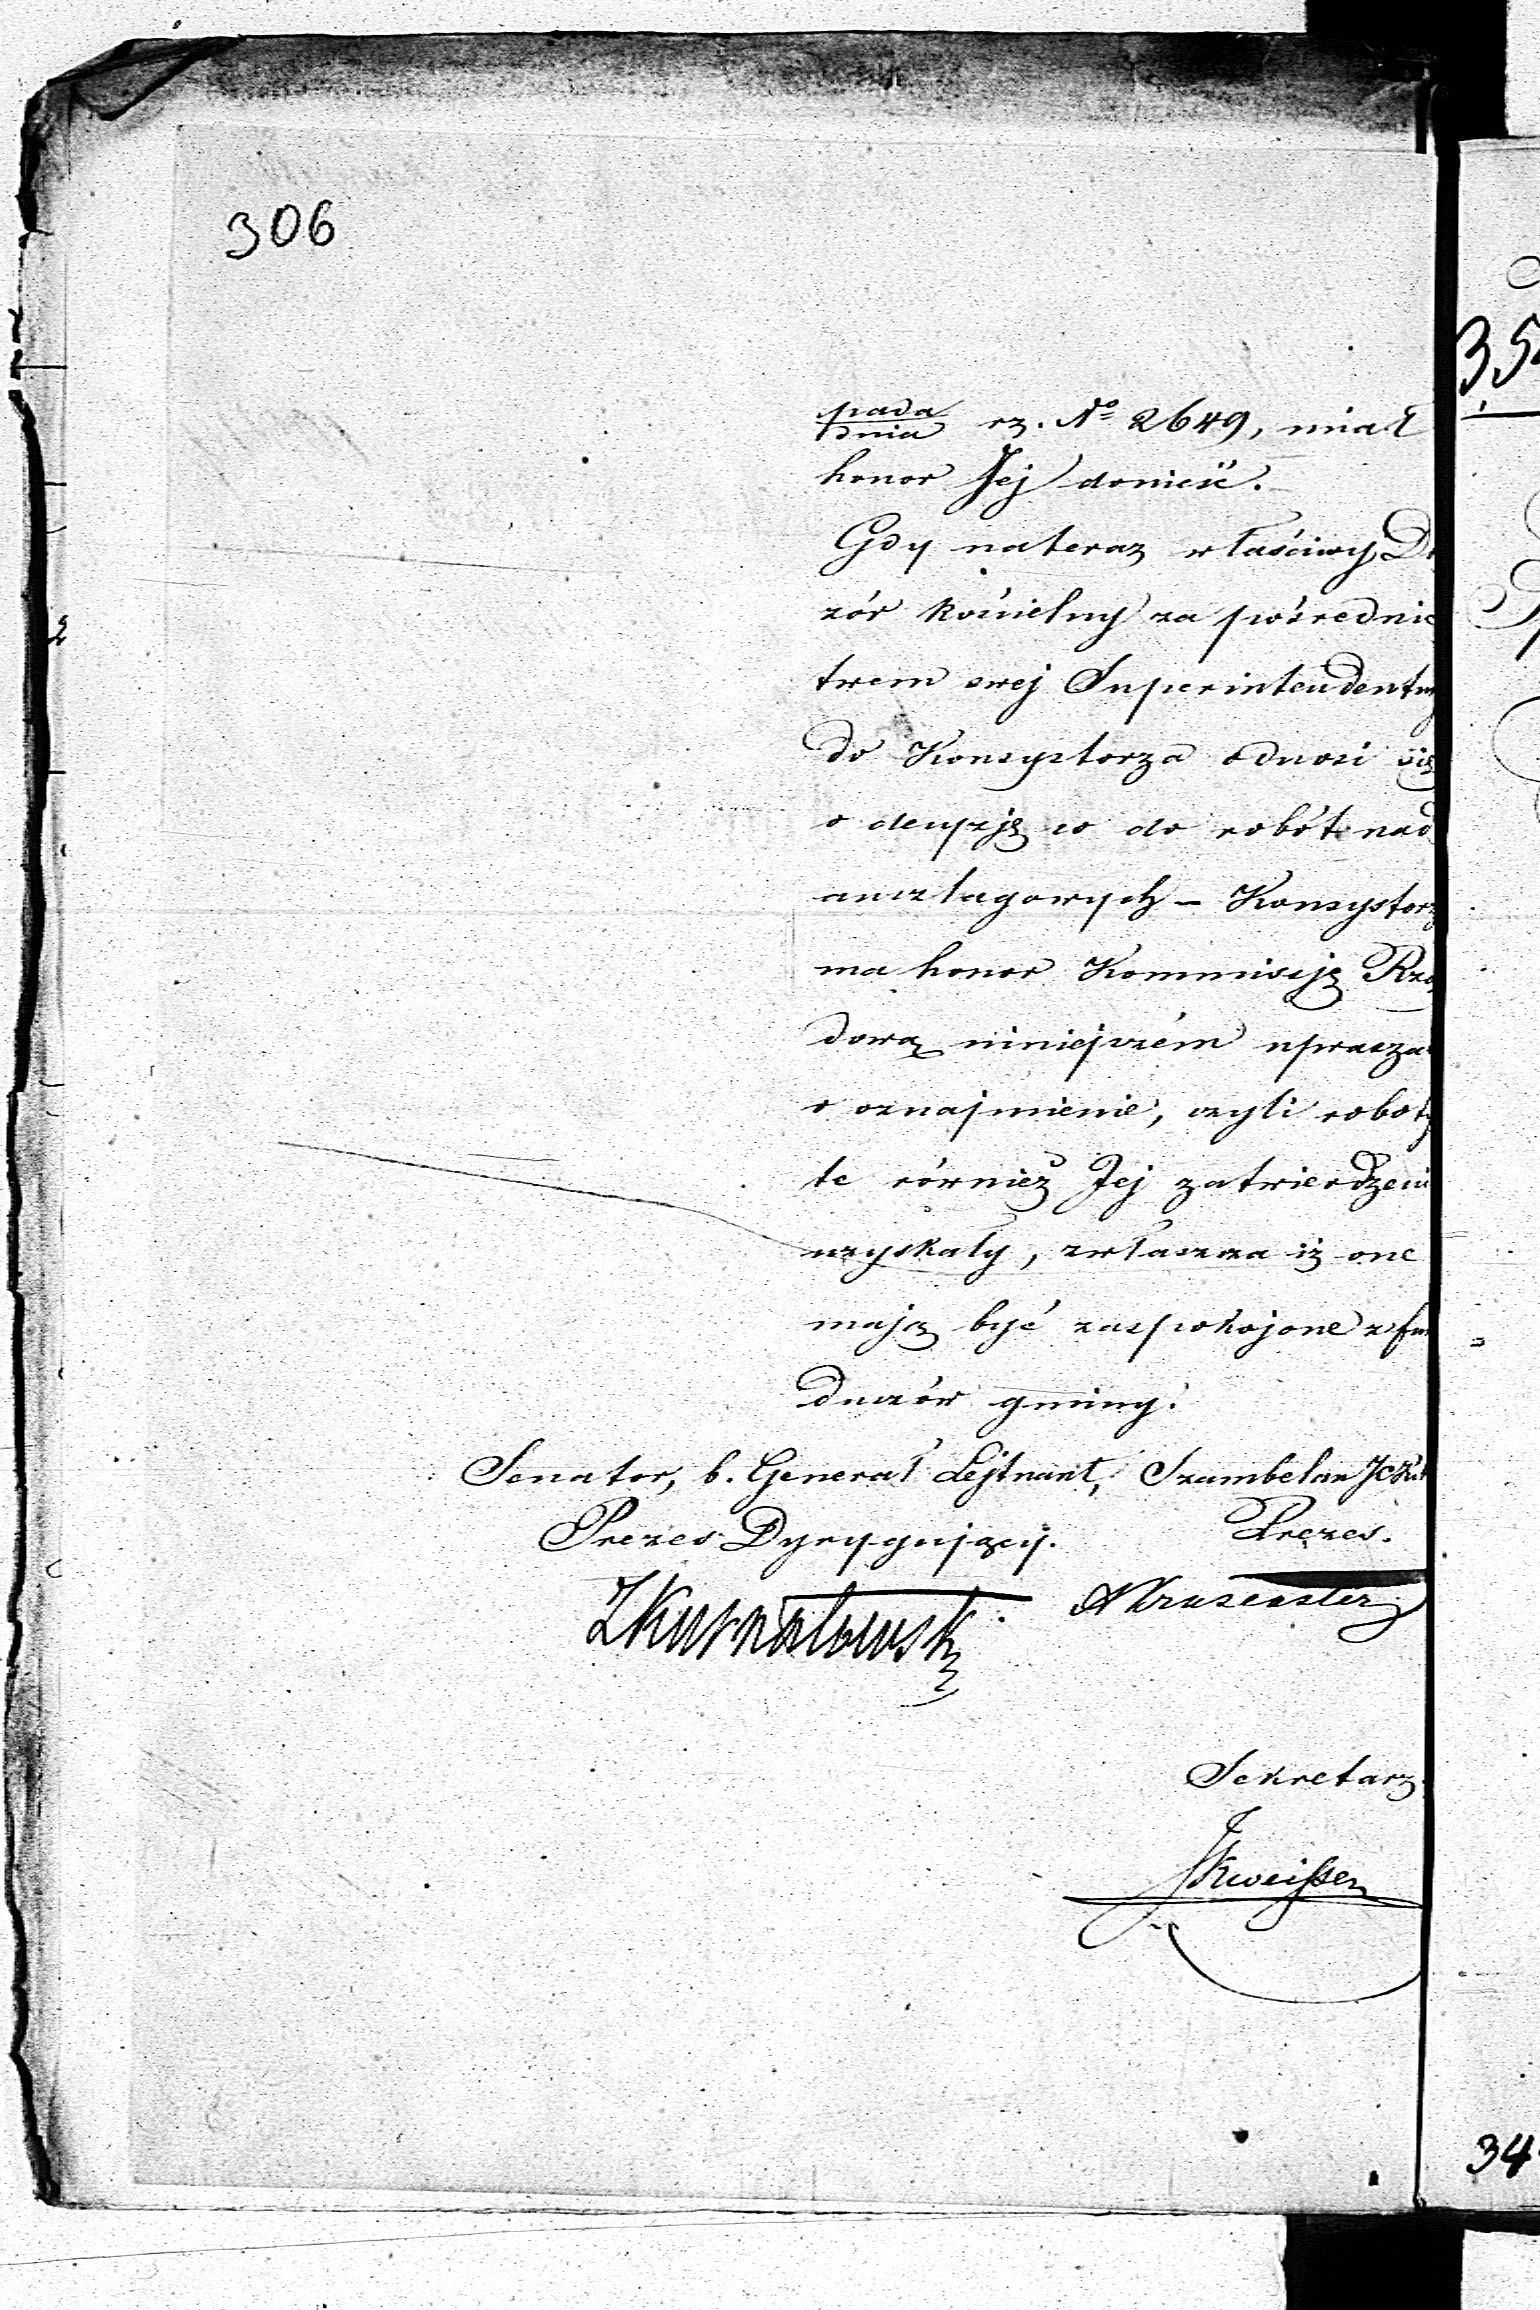 306
pada
dnia rz. No 2649, miał
honor Jej donieść.
Gdy nateraz właściwy Do
zór kościelny za pośrednic
twem swej Superintendentury
do Konsystorza odnosi się
o decyzję co do robót nad
anszlagowych – Konsystorz
ma honor Kommissję Rzą
dową niniejszém upraszać
o oznajmienie, czyli roboty
te również Jej zatwierdzenie
uzyskały, zwłaszcza iż one
mają być zaspokojone z fun
duszów gminy.
Senator, b. Generał Lejtnant, Szambelan JCKM
Prezes Dyrygujący. Prezes.
ZKurnatowski AKruzenstern
Sekretarz
JKweisser
34